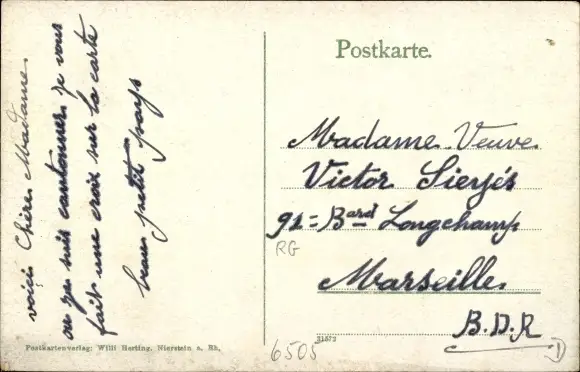 voici Chère Madame
ou je suis cantonner je vous
fait une croix sur la carte
beau petit pays
Postkarte.
Madame Veuve
Victor Sieyés
91 = Bard Longchamp
RG
Marseille.
B.D.R
6505
31572
Postkartenverlag: Willi Herling, Nierstein a. Rh.